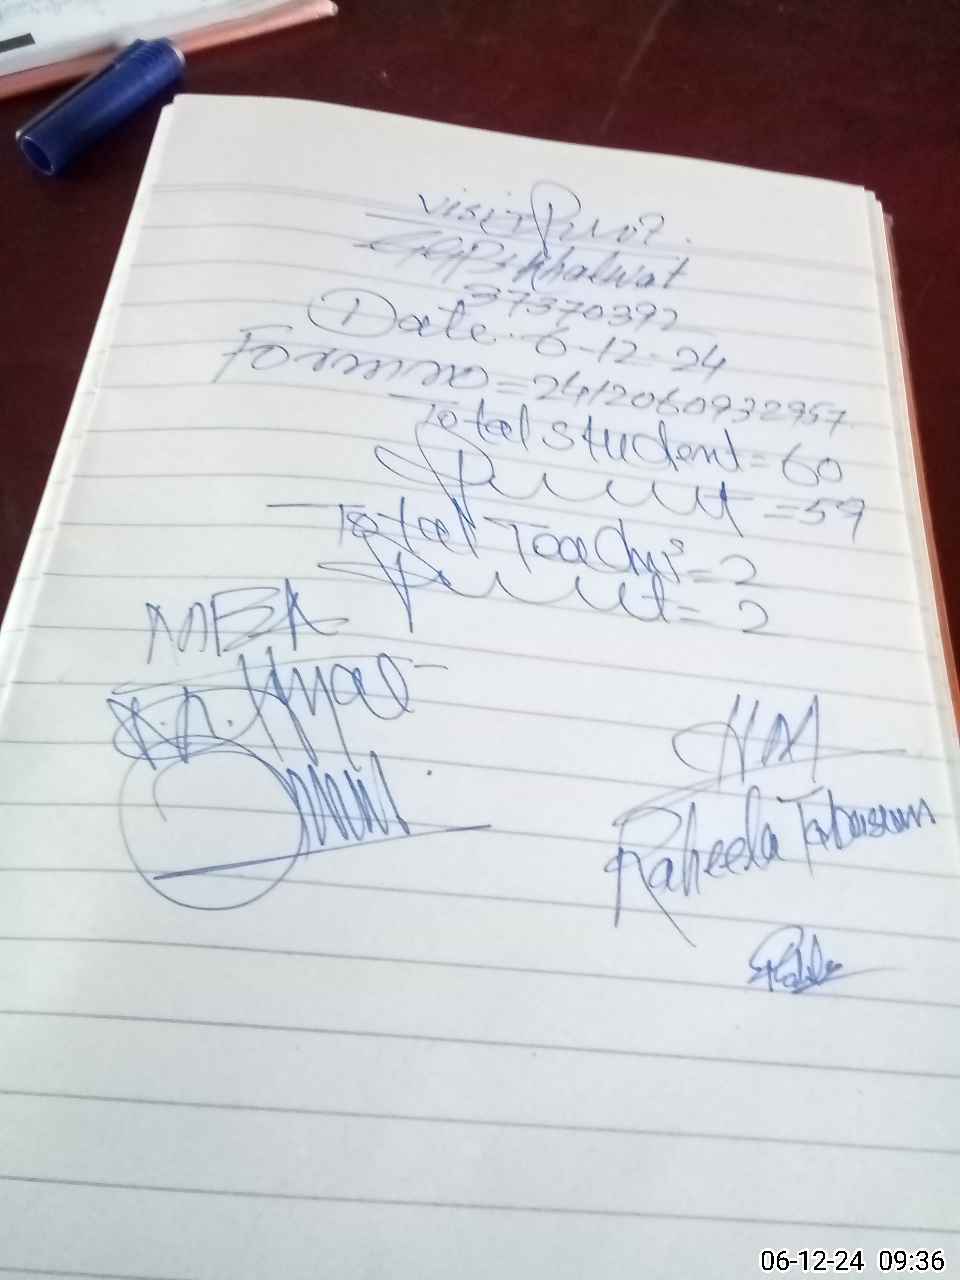 visit Proof.
GGPS Khalwat
37370392
Date. 6-12-24
Form no = 2412060932957
Total student = 60
Present = 59
Total Teachers = 2
Present = 2
MEA
HM
Raheela Tabassum
06-12-24 09:36